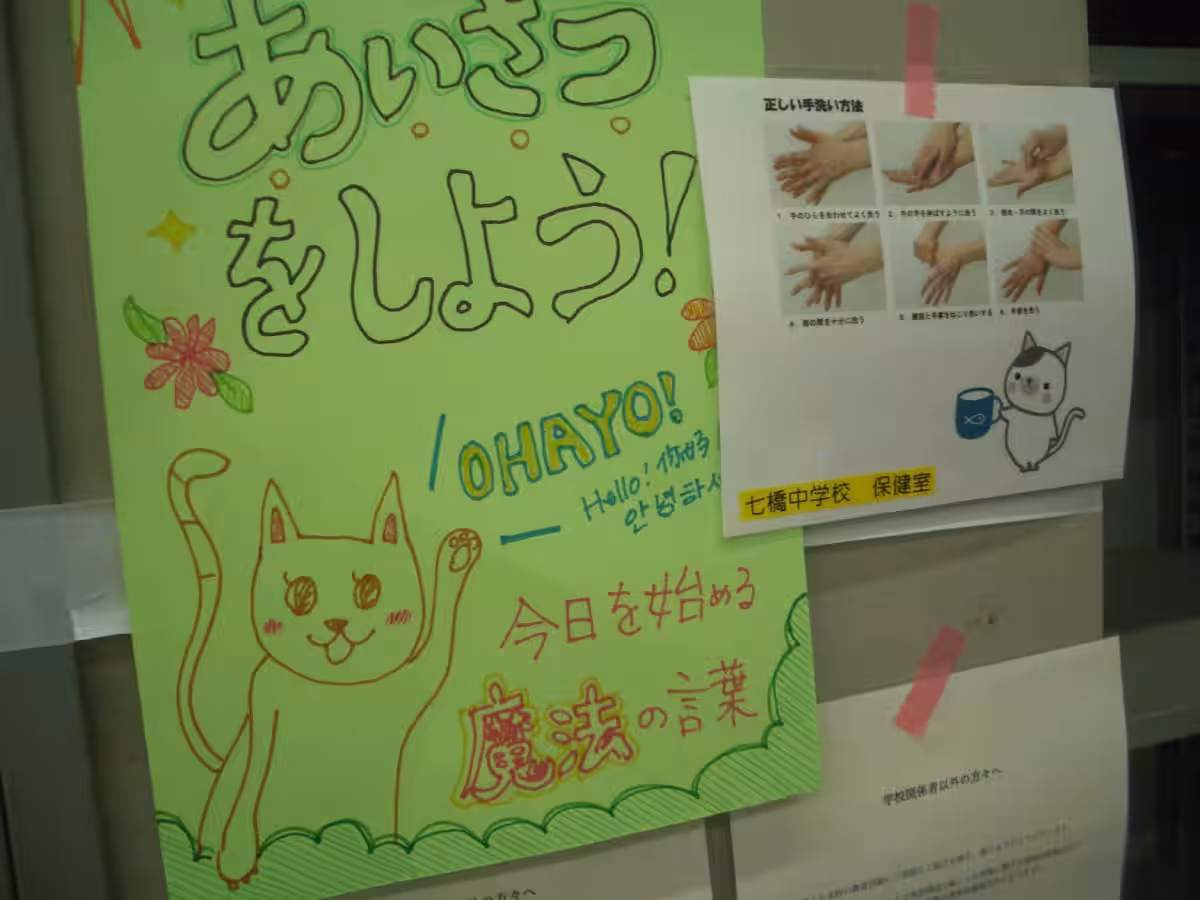 あいさつ
をしよう!
OHAYO!
Hello! 你好
안녕하
今日を始める
魔法の言葉
正しい手洗い方法
1. 手のひらを合わせてよく洗う
2. 手の甲を伸ばすように洗う
3. 指先・爪の間をよく洗う
4. 指の間を十分に洗う
5. 親指と手掌をねじり洗いする
6. 手首を洗う
七橋中学校 保健室
学校関係者以外の方々へ
の方々へ